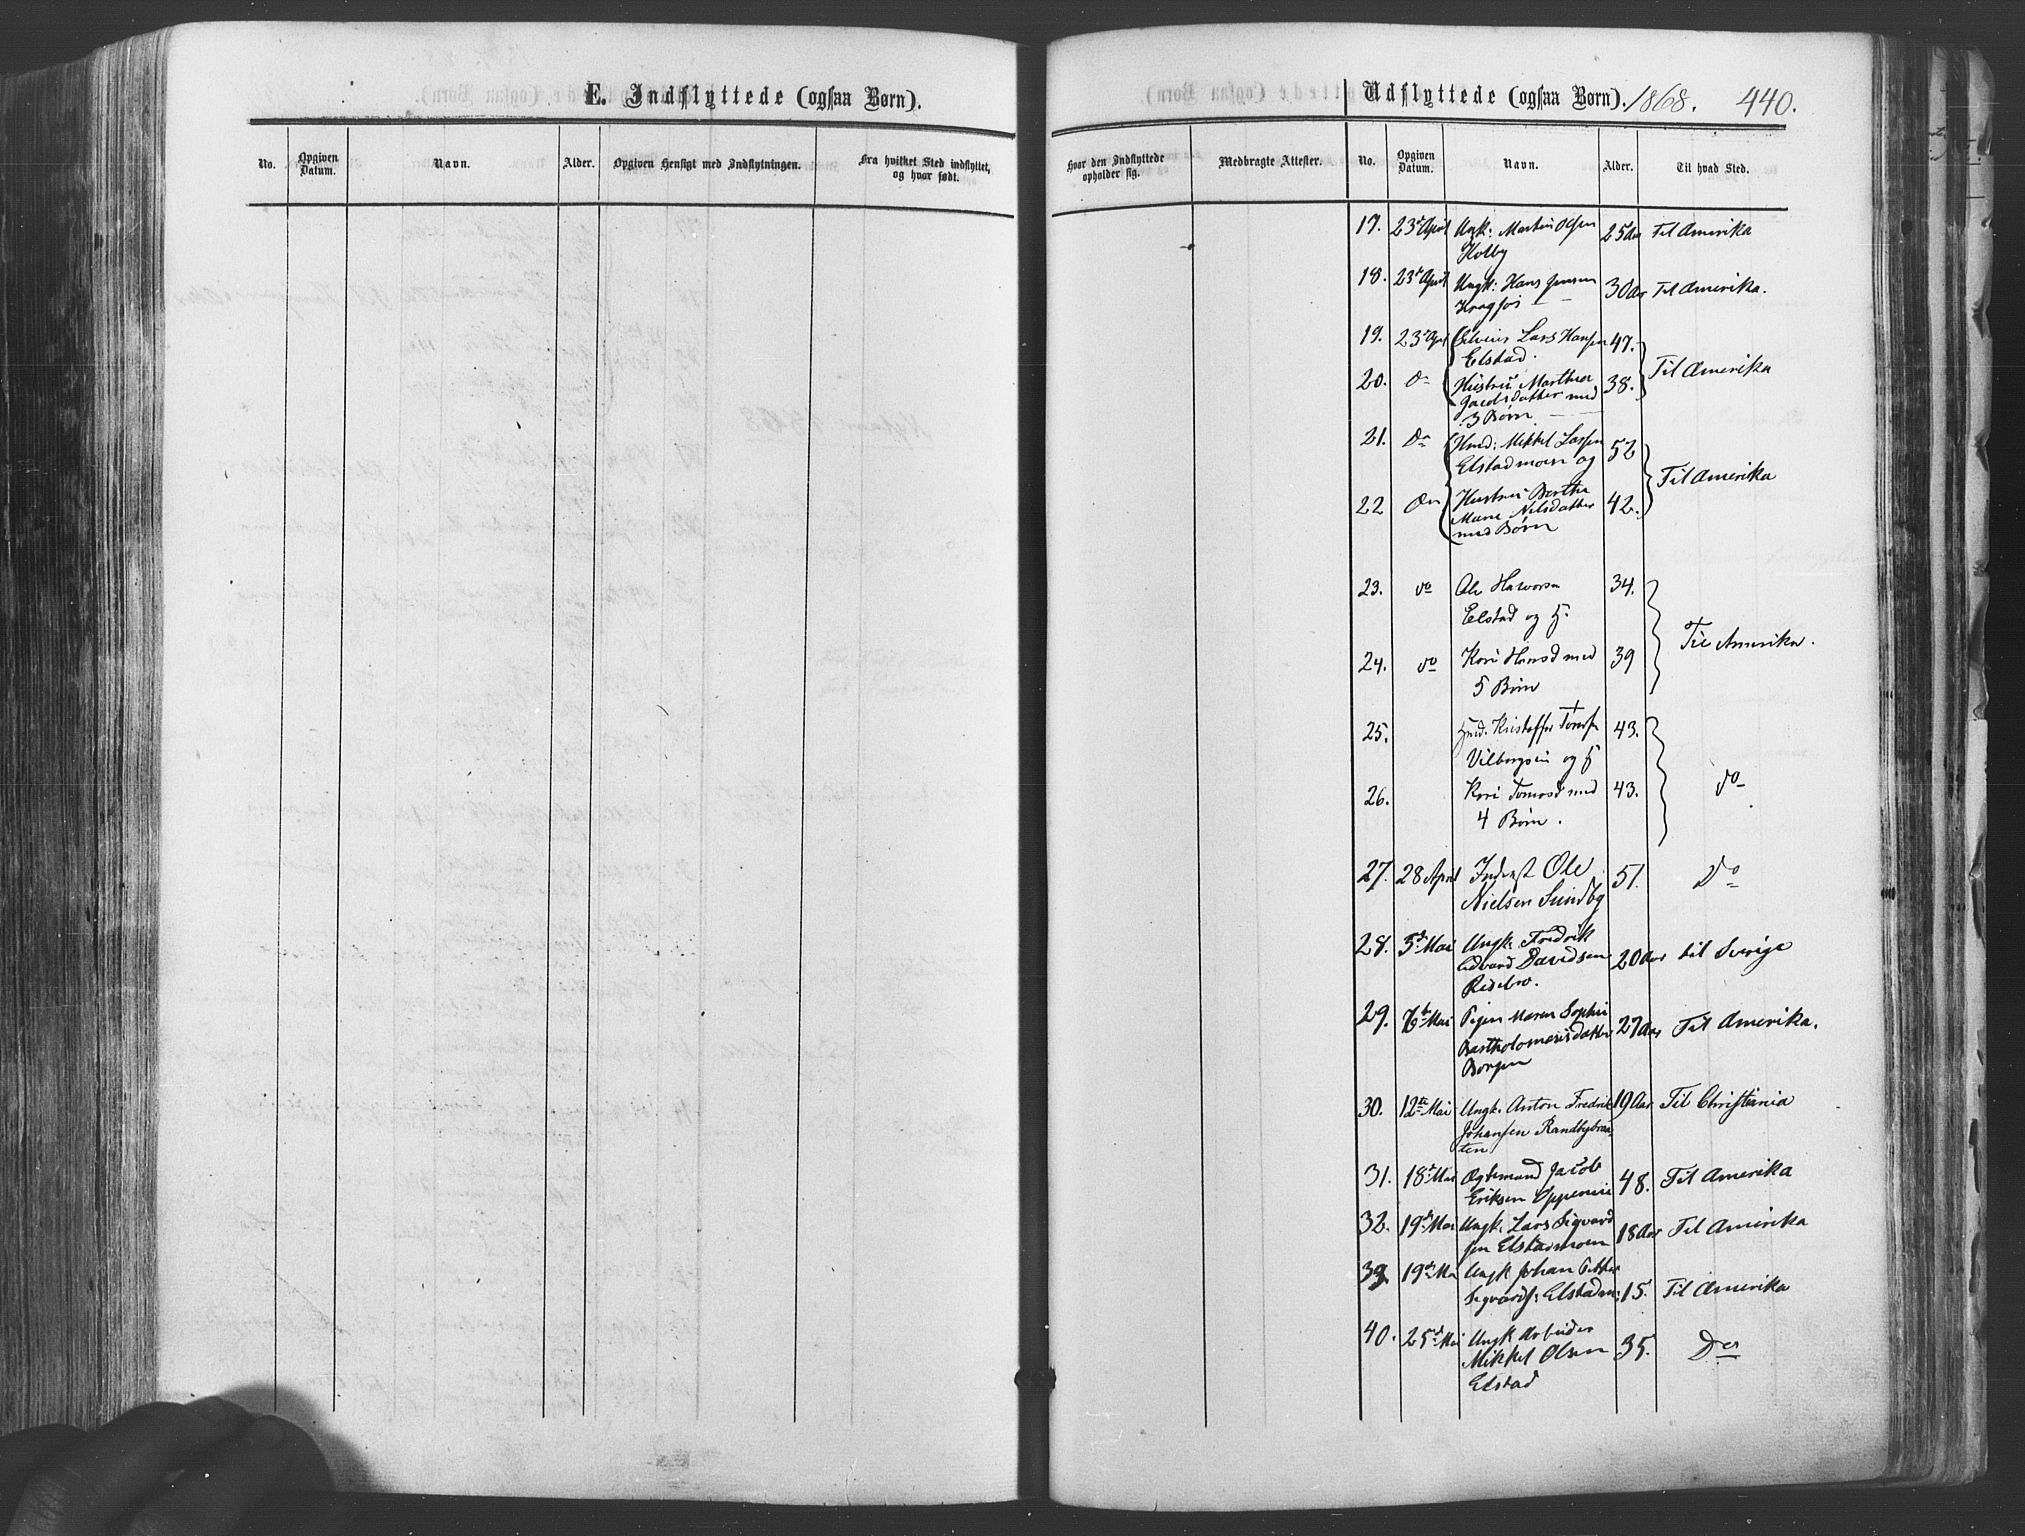 E. Indflyttede (ogsaa Børn).
No.
Opgiven
Datum.
Navn.
Alder.
Opgiven Hensigt med Indflytningen.
Fra hvilket Sted indflyttet,
og hvor født.
Udflyttede (ogsaa Børn). 1868. 440.
Hvor den Indflyttede
opholder sig.
Medbragte Attester.
No.
Opgiven
Datum.
Navn.
Alder.
Til hvad Sted.
17. 23de April Ungk: Martin Olsen 25 Aar Til Amerika
Holby
18. 23de April Ungk: Hans Jensen 30 Aar Til Amerika.
19. 23de April Lars Hansen 47.
Elstad.
Til Amerika
20. Do Hustru Marthea 38.
Jacobsdatter med
3 Børn
21. Do Hmd: Mikkel Larsen 52
Elstadmoen og
Til Amerika
22 Do Hustru Berthe 42.
Marie Nilsdatter
med Børn
23. do Ole Halvorsen 34.
Elstad og H.
Til Amerika.
24. do Kari Hansd med 39
5 Børn
25. Hmd. Kristoffer 43.
og H
26. Kari med 43. do
4 Børn.
27. 28 April Inderst Ole 51. Do
Nielsen Sundby
28. 5te Mai Ungk: Fredrik
Edvard Davidsen 20 Aar til Sverige
29. Mai Pigen Maren Sophie 27 Aar Til Amerika.
Bartholomeusdatter
Borgen
30. 12te Mai Ungk. Anton Fredrik 19 Aar Til Christiania
Johansen Randbybraa-
ten
31. 18de Mai Ægtemand Jacob 48. Til Amerika
Eriksen
32. 19de Mai Ungk. Lars Sigvard 18 Aar Til Amerika
sen Elstadmoen
39. 19de Mai Ungk Johan Petter
Sigvards: Elstadm: 15. Til Amerika
40. 25de Mai Ungk Arbeider
Mikkel Olsen 35. Do
Elstad